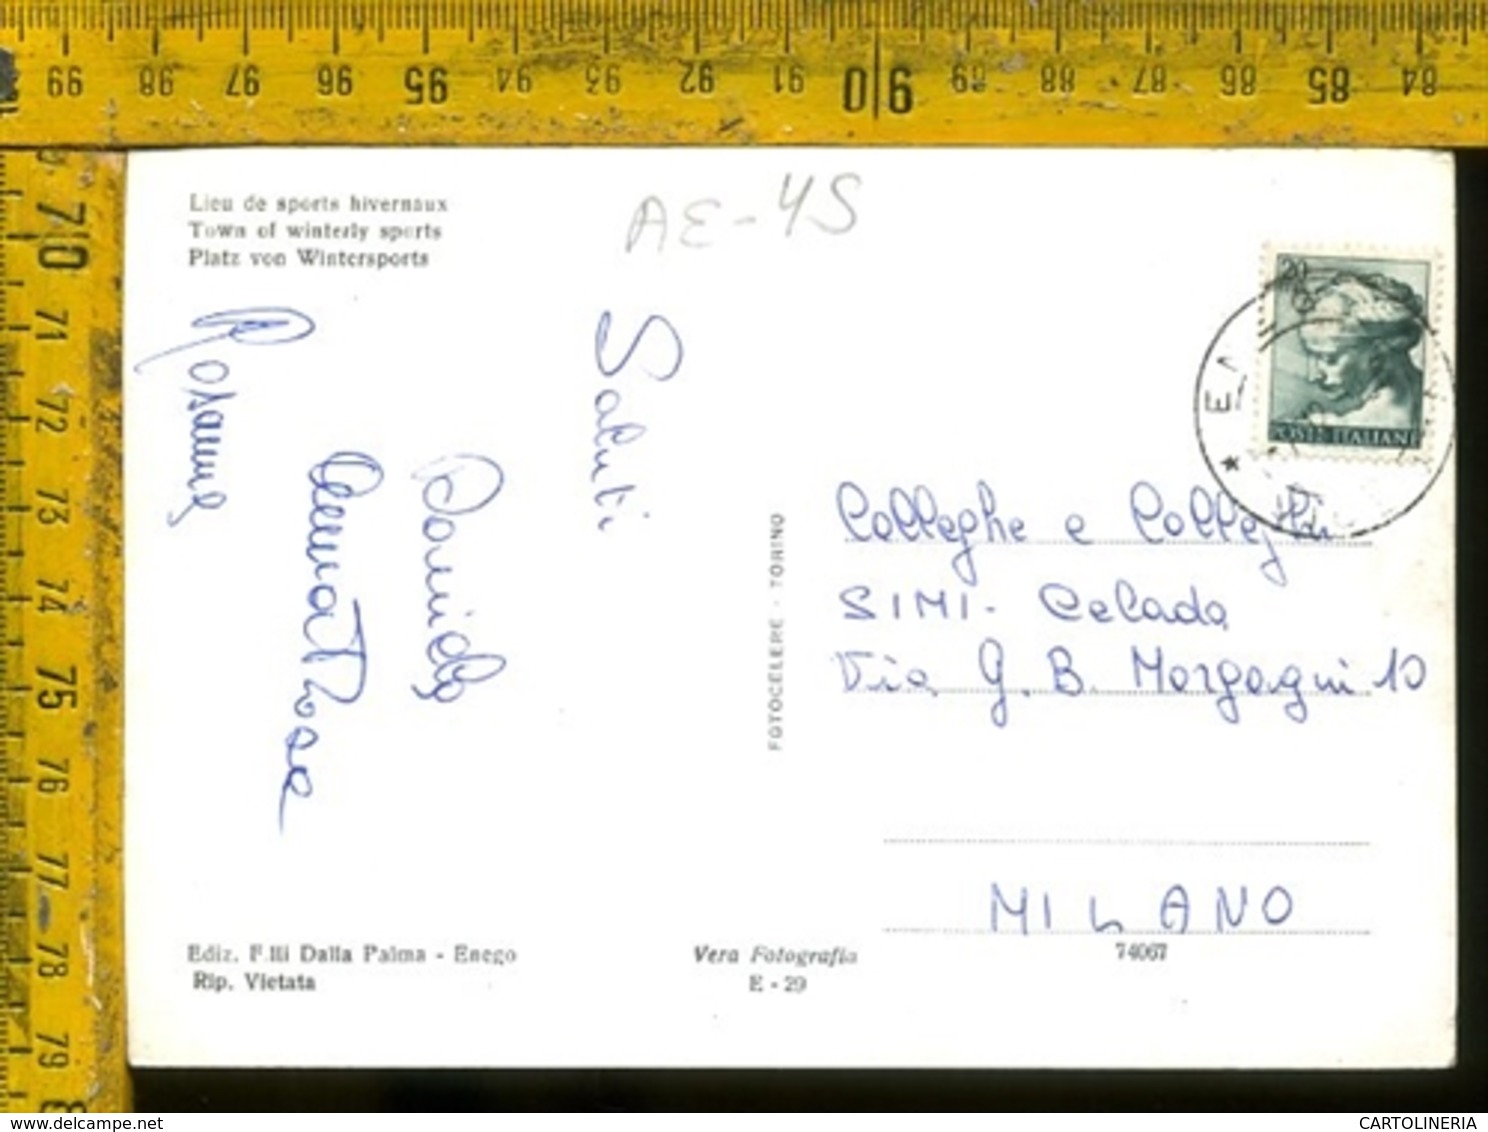 99 98 97 96 95 94 93 92 91 90 89 88 87 86 85 84
70
71
72
73
74
75
76
77
78
79
8
Lieu de sports hivernaux
Town of winterly sports
Platz von Wintersports
AE-45
20
POSTE ITALIANE
Saluti
Daniela
Anna Rosa
Rosanna
FOTOCELERE - TORINO
Colleghe e Colleghi
SIMI - Celada
Via G. B. Morgagni 10
MILANO
Ediz. F.lli Dalla Palma - Enego
Rip. Vietata
Vera Fotografia
E - 29
74067
delcampe.net
CARTOLINERIA